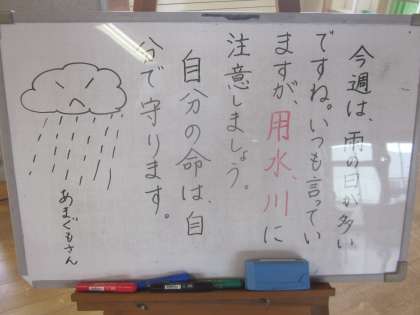 今週は、雨の日が多い
ですね。いつも言ってい
ますが、用水、川に
注意しましょう。
自分の命は、自
分で守ります。
あまぐもさん